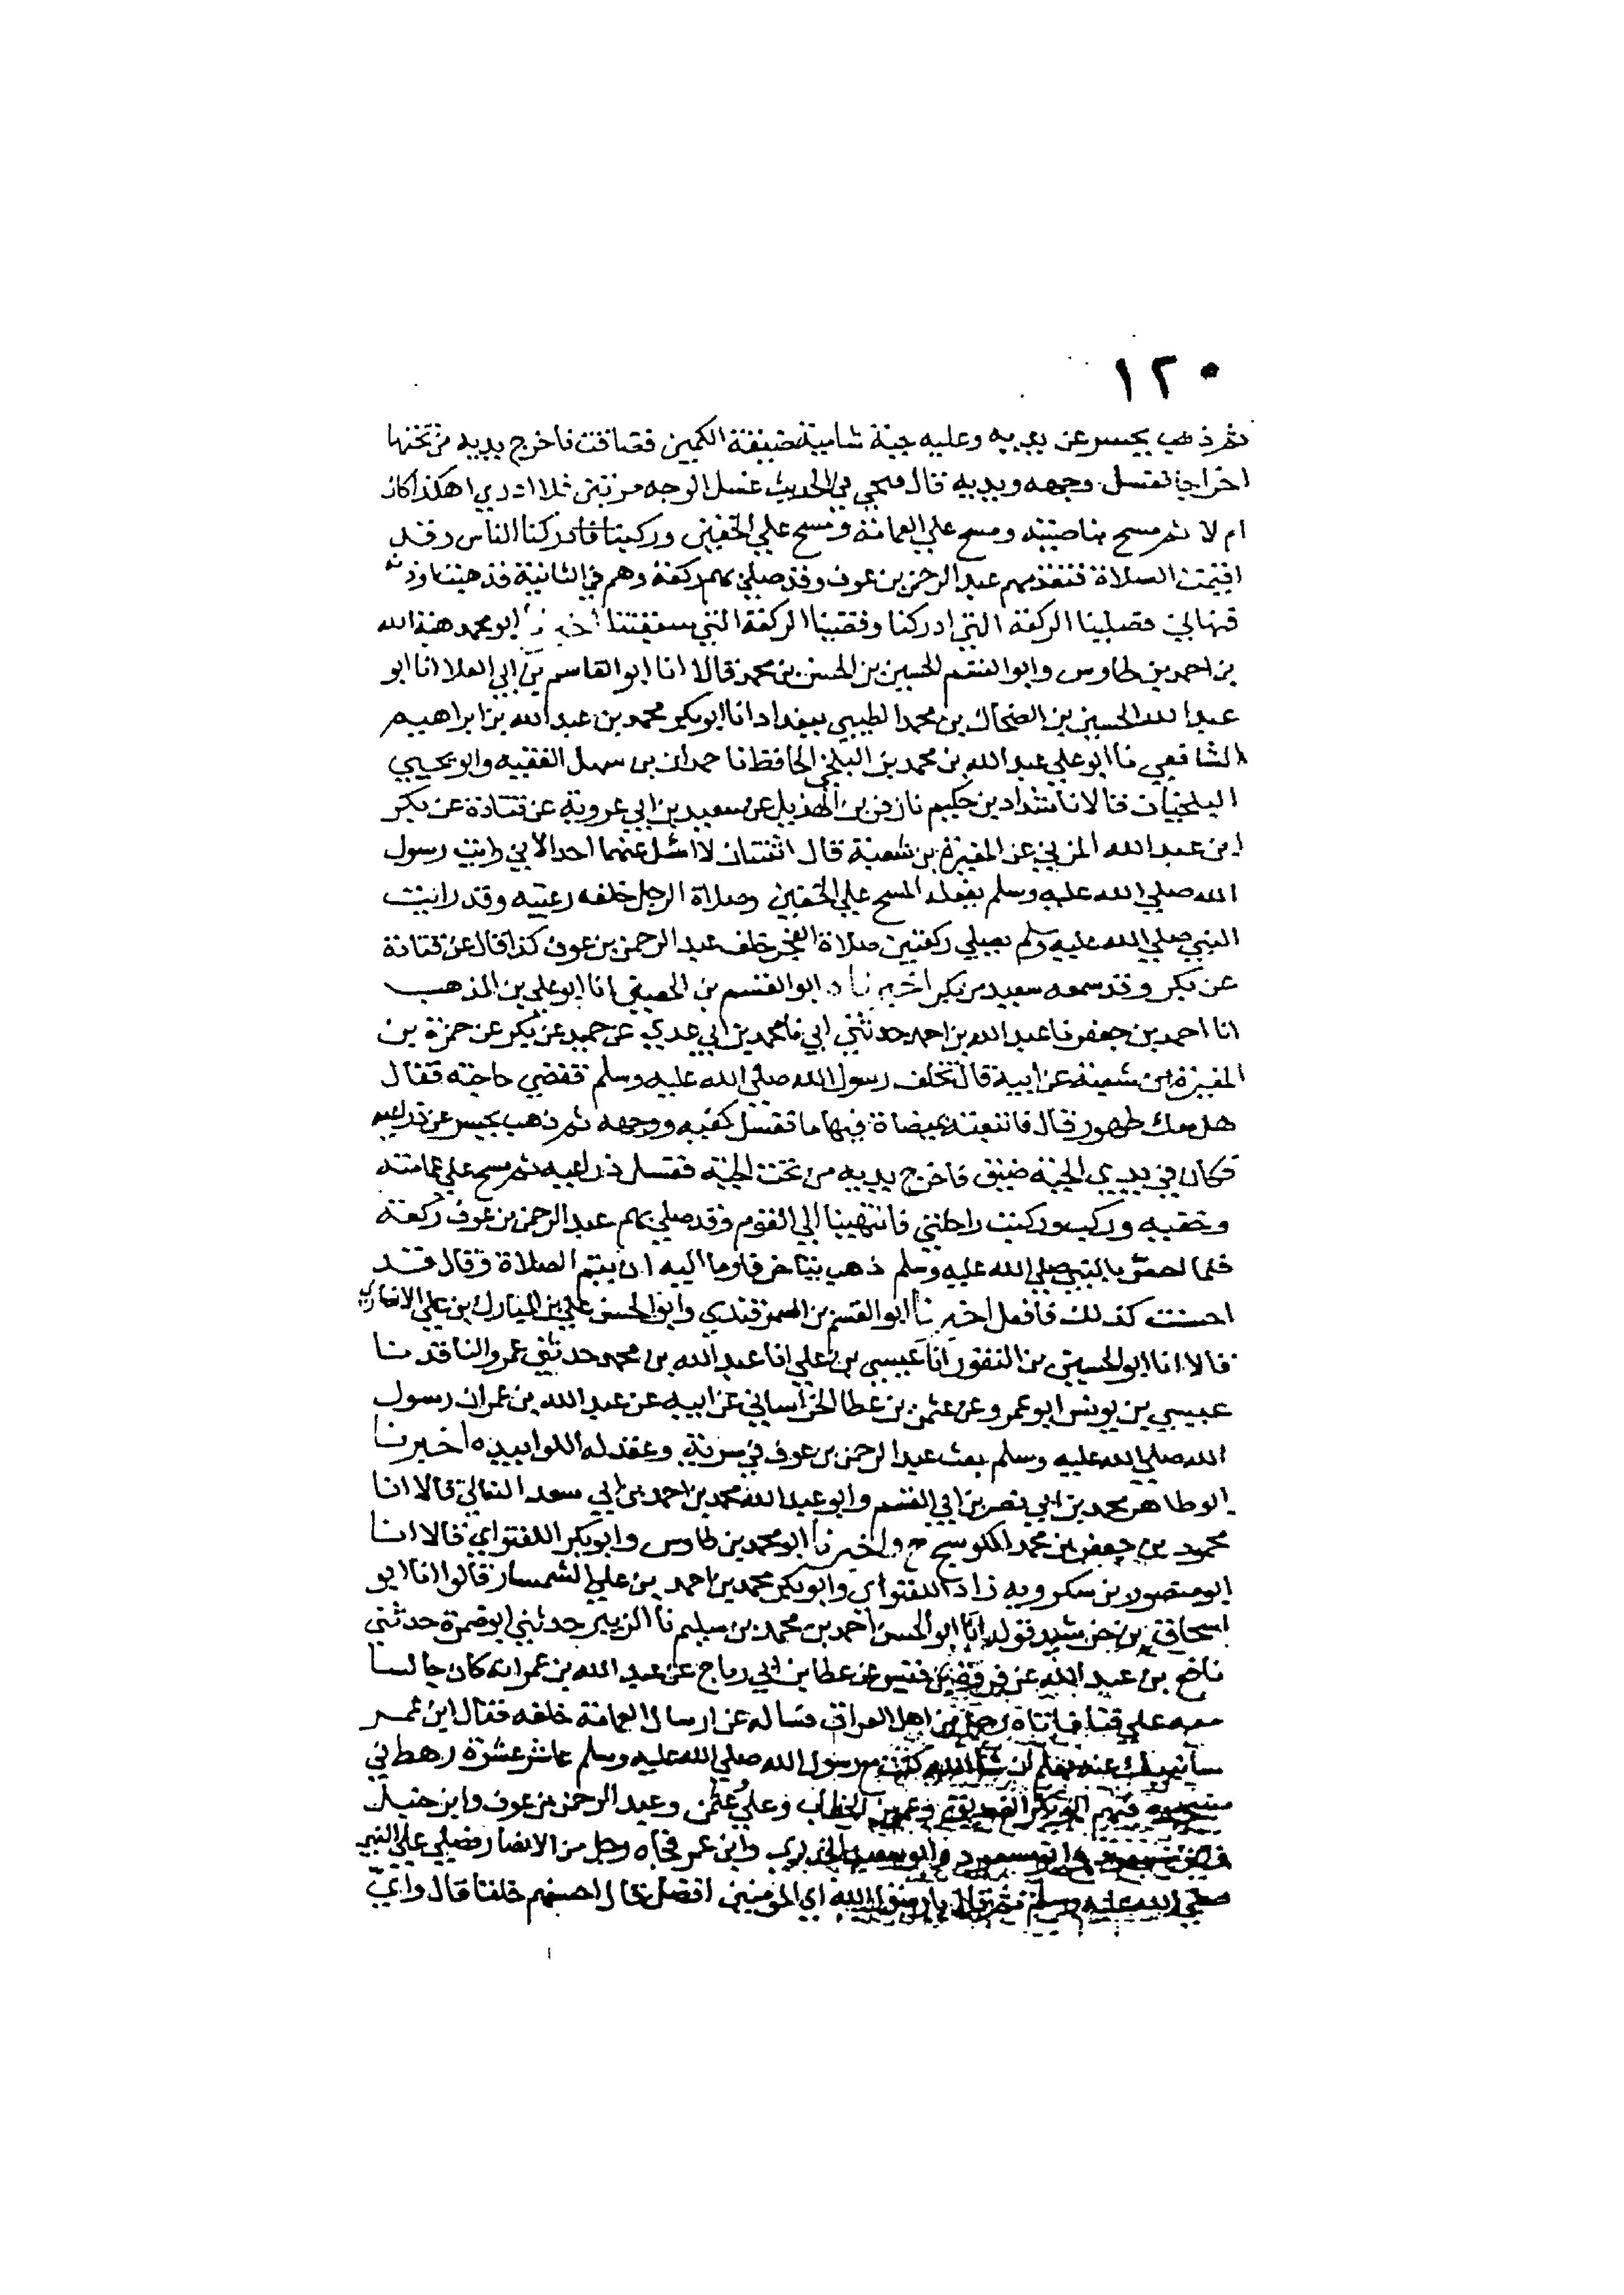 ١٢٠
ثم ذهب يحسر عن يديه وعليه جبة شامية ضيقة الكمين فضاقت فاخرج يديه من تحتها
اخراجا فغسل وجهه ويديه قال فيجي في الحديث غسل الوجه مرتين فلا ادري اهكذا كان
ام لا ثم مسح بناصيته ومسح علي العمامة ومسح علي الخفين وركبنا فادركنا الناس وقد
اقيمت الصلاة فتقدمهم عبد الرحمن بن عوف وقد صلي بهم ركعة وهم في الثانية فذهبت اوذنه
فنهاني فصلينا الركعة التي ادركنا وقضينا الركعة التي سبقتنا اخبرنا ابو محمد هبة الله
بن احمد بن طاوس وابو القسم الحسين بن الحسن بن محمد قالا انا ابو القاسم بن ابي العلا انا ابو
عبد الله الحسين بن الضحاك بن محمد الطيبي ببغداد انا ابو بكر محمد بن عبد الله بن ابراهيم
الشافعي نا ابو علي عبد الله بن محمد بن البلخي الحافظ نا حمدان بن سهل الفقيه وابو يحيي
البلخيان قالا نا شداد بن حكيم نا زفر بن الهذيل عن سعيد بن ابي عروبة عن قتادة عن بكر
ابن عبد الله المزني عن المغيرة بن شعبة قال اثنتان لا اسئل عنهما احدا لاني رايت رسول
الله صلي الله عليه وسلم يفعله المسح علي الخفين وصلاة الرجل خلفه رعيته وقد رايت
النبي صلي الله عليه وسلم يصلي ركعتين صلاة الفجر خلف عبد الرحمن بن عوف كذا قال عن قتادة
عن بكر وقد سمعه سعيد من بكر اخبرناه ابو القسم بن الحصين انا ابو علي بن المذهب
انا احمد بن جعفر نا عبد الله بن احمد حدثني ابي نا محمد بن ابي عدي عن حميد عن بكر عن حمزة بن
المغيرة بن شعبة عن ابيه قال تخلف رسول الله صلي الله عليه وسلم فقضي حاجته فقال
هل معك طهور قال فاتبعته بميضاة فيها ما فغسل كفيه ووجهه ثم ذهب يحسر عن ذراعيه
فكان في يدي الجبة ضيق فاخرج يديه من تحت الجبة فغسل ذراعيه ثم مسح علي عمامته
وخفيه وركب وركبت راحلتي فانتهينا الي القوم وقد صلي بهم عبد الرحمن بن عوف ركعة
فلما احس بالنبي صلي الله عليه وسلم ذهب يتاخر فاوما اليه ان يتم الصلاة وقال قد
احسنت كذلك فافعل اخبرنا ابو القسم بن السمرقندي وابو الحسن علي بن المبارك بن علي الانصاري
قالا انا ابو الحسين بن النقور انا عيسي بن علي انا عبد الله بن محمد حدثني عمرو الناقد نا
عيسي بن يونس ابو عمرو عن عثمن بن عطا الخراساني عن ابيه عن عبد الله بن عمر ان رسول
الله صلي الله عليه وسلم بعث عبد الرحمن بن عوف في سرية وعقد له اللوا بيده اخبرنا
ابو طاهر محمد بن ابي نصر بن ابي القسم وابو عبد الله محمد بن احمد بن ابي سعد البقالي قالا انا
محمود بن جعفر بن محمد الكوسج ح واخبرنا ابو محمد بن طاوس وابو بكر اللفتواي قالا انا
ابو منصور بن سكرويه زاد اللفتواي وابو بكر محمد بن احمد بن علي السمسار قالوا انا ابو
اسحاق بن خرشيد قوله انا ابو الحسن احمد بن محمد بن سليم نا الزبير حدثني ابو ضمرة حدثني
نافع بن عبد الله عن فروة بن قيس عن عطا بن ابي رباح عن عبد الله بن عمر انه كان جالسا
معه علي فاتاه رجل من اهل العراق فساله عن ارسال العمامة خلفه فقال ابن عمر
سانبيك عنه بعلم ان شا الله كنت مع رسول الله صلي الله عليه وسلم عاشر عشرة رهط في
مسجده فيهم ابو بكر الصديق وعمر بن الخطاب وعلي وعثمن وعبد الرحمن بن عوف وابن جبل
وابن مسعود وابو سعيد الخدري وابن عمر فجاه رجل من الانصار فصلي علي النبي
صلي الله عليه وسلم ثم قال يا رسول الله اي المومنين افضل قال احسنهم خلقا قال واي